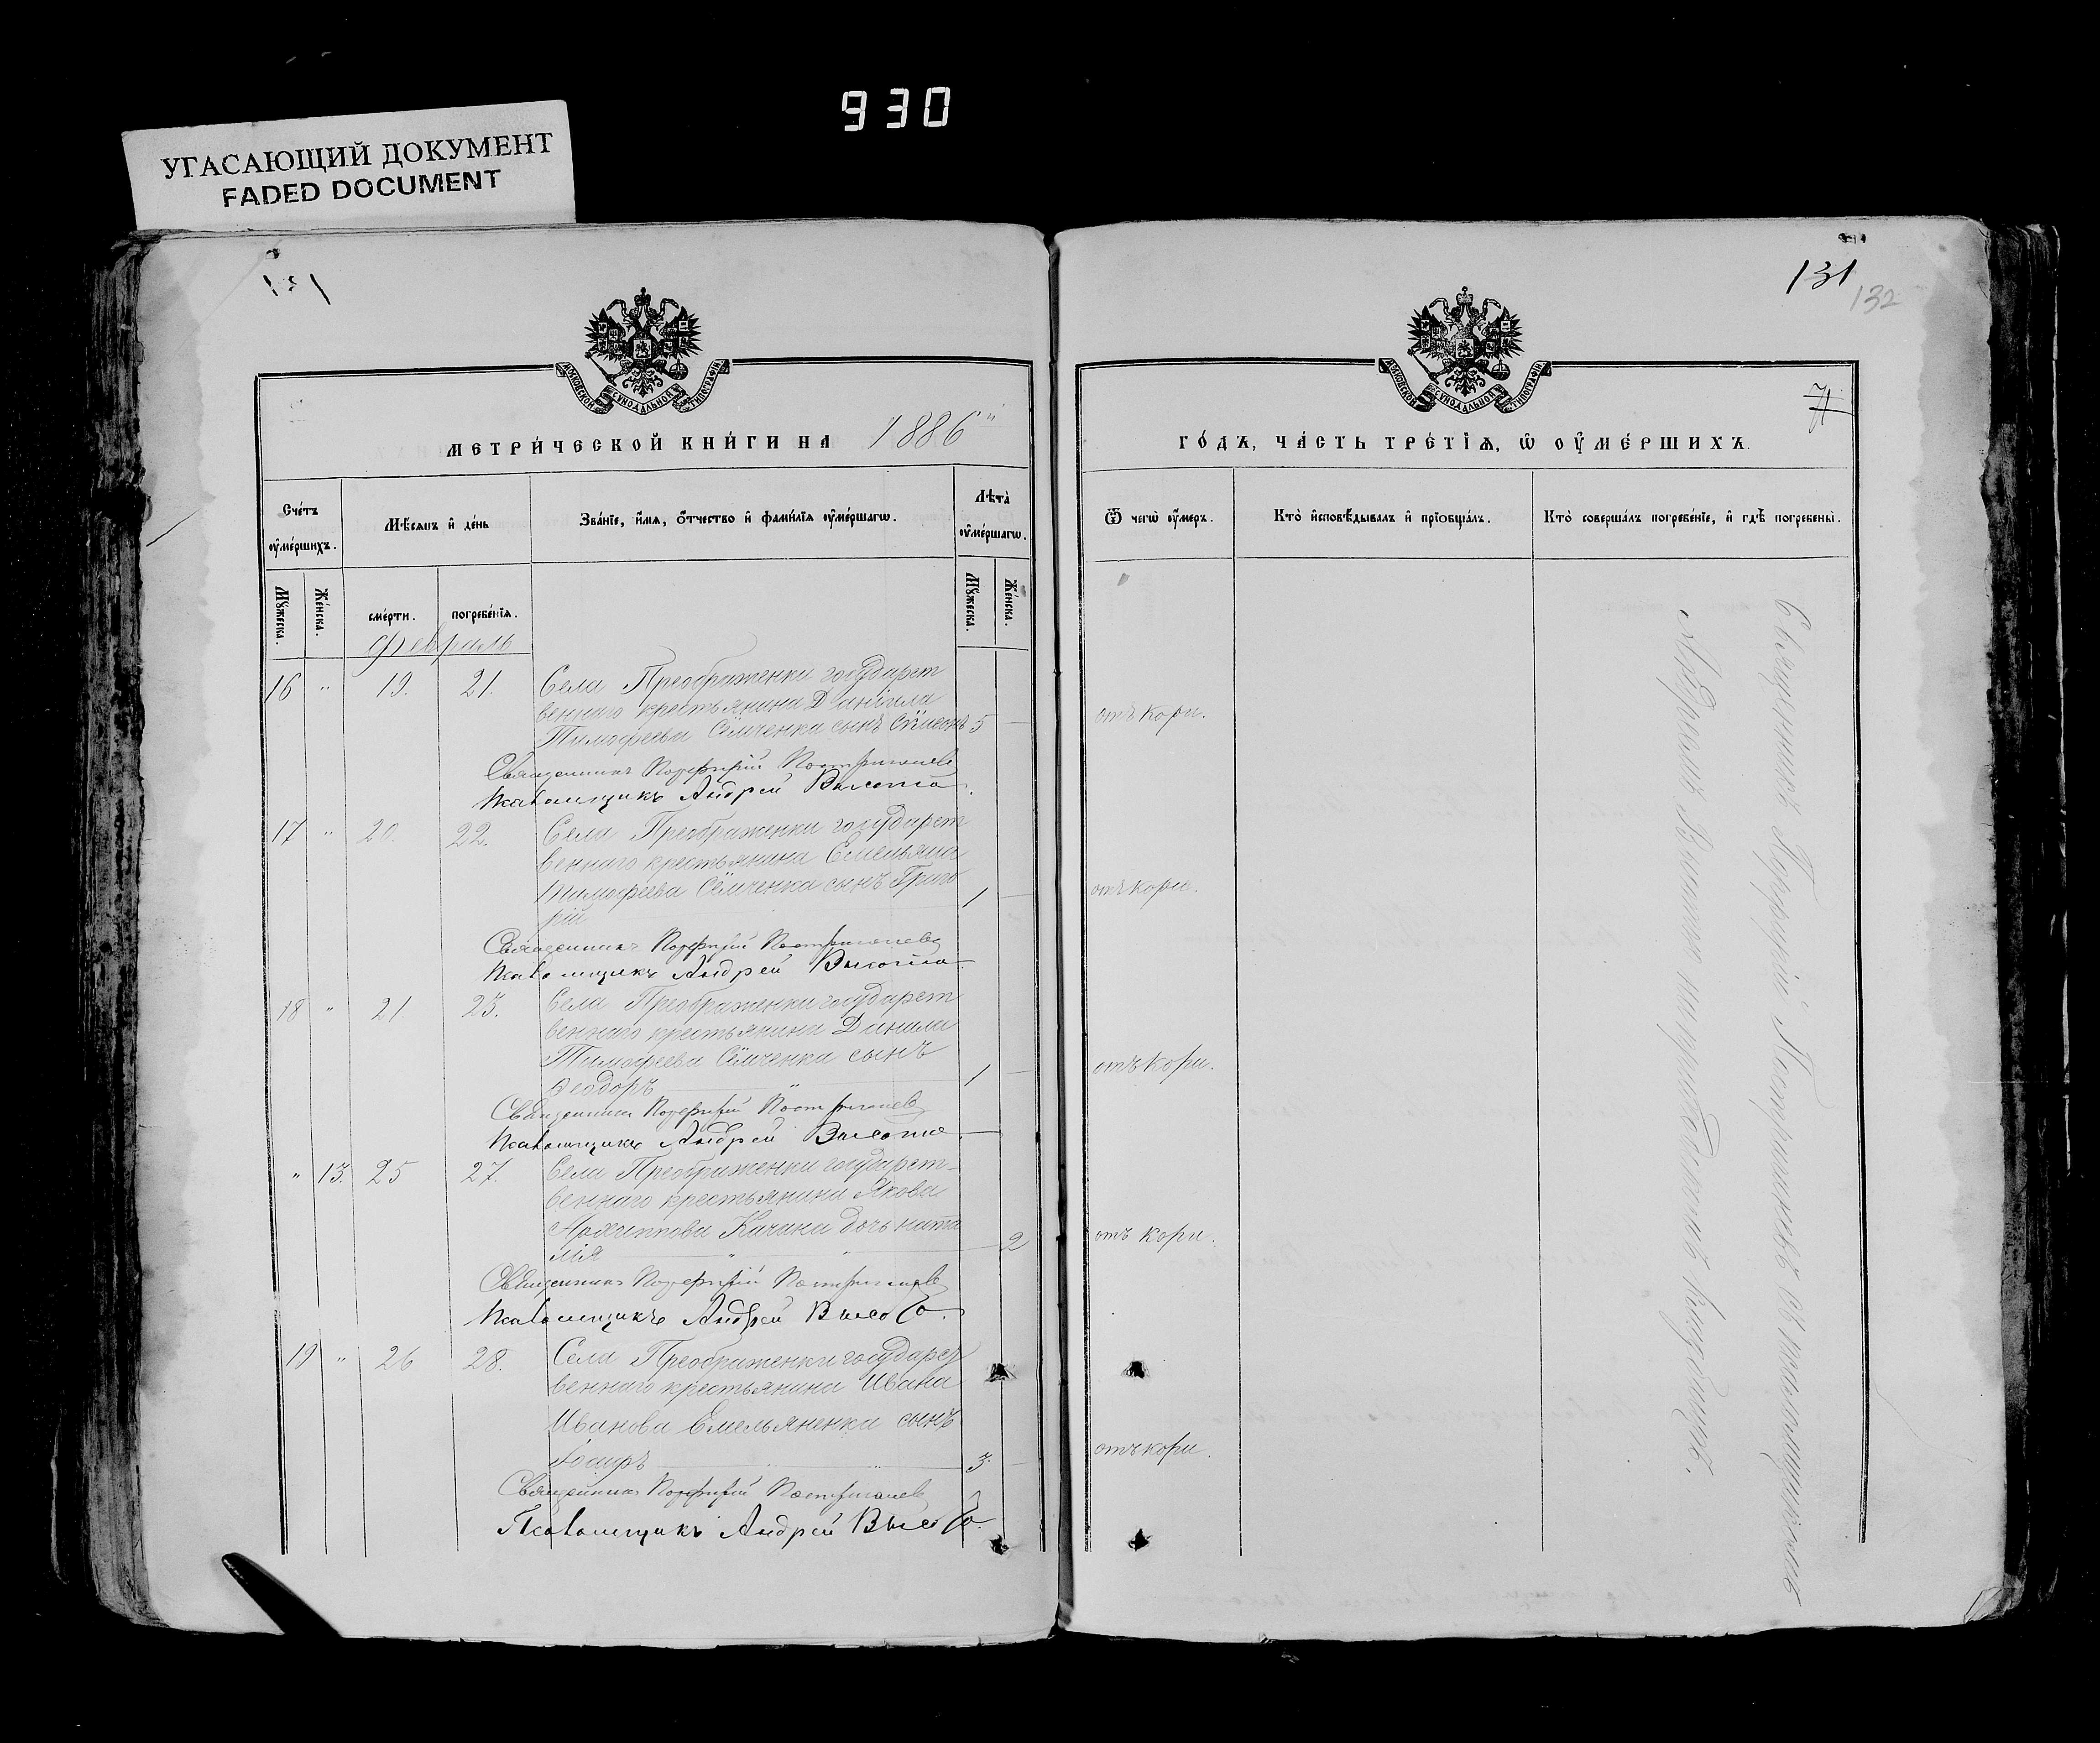 930
УГАСАЮЩИЙ ДОКУМЕНТ
FADED DOCUMENT
131
132
71
МОСКОВСКОЙ СУНОДАЛЬНОЙ ТИПОГРАФІИ
МОСКОВСКОЙ СУНОДАЛЬНОЙ ТИПОГРАФІИ
МЕТРИ́ЧЕСКОЙ КНИ́ГИ НА 1886
ГО́ДЪ, ЧА́СТЬ ТРЕ́ТІѦ, Ѡ ОУ҆МЕ́РШИХЪ.
Сче́тъ оу҆ме́ршихъ.
Мѣ́сяцъ и де́нь
Зва́нїе, и҆́мя, ѻ҆́тчество и҆ фами́лїя оу҆ме́ршагѡ.
Лѣ́та оу҆ме́ршагѡ.
Ѿ чегѡ̀ оу҆́меръ.
Кто̀ и҆сповѣ́дывалъ и҆ прїѻбща́лъ.
Кто̀ соверша́лъ погребе́нїе, и҆ гдѣ̀ погребены̀.
Мꙋ́жеска.
Же́нска.
сме́рти.
погребе́нїя.
Мꙋ́жеска.
Же́нска.
Февраль
16 " 19. 21. Села Преображенки государст
веннаго крестьянина Даніила
Тимофеева Сёмченка сынъ 5 — отъ кори.
Священникъ Порфирій Постриганевъ
Псаломщикъ Андрей Высота.
17 " 20. 22. Села Преображенки государст
веннаго крестьянина Емельяна
Тимофеева Сёмченка сынъ Григо
рій 1 — отъ кори.
Священникъ Порфирій Постриганевъ
Псаломщикъ Андрей Высота.
18 " 21 23. Села Преображенки государст
веннаго крестьянина Данила
Тимофеева Сёмченка сынъ
Ѳеодоръ " 1 — отъ кори.
Священникъ Порфирій Постриганевъ
Псаломщикъ Андрей Высота.
" 13. 25 27. Села Преображенки государст-
веннаго крестьянина Якова
Архиппова Качана дочь ната
лія " — 2 отъ кори.
Священникъ Порфирій Постриганевъ
Псаломщикъ Андрей Высота.
19 " 26 28. Села Преображенки государст
веннаго крестьянина Ивана
Иванова Емельяненка сынъ
Іосифъ 3. — отъ кори.
Священникъ Порфирій Постриганевъ
Псаломщикъ Андрей Высота.
Священникъ Порфирій Постриганевъ съ псаломщикомъ
Андреемъ Высотою на приходскомъ кладбищѣ.